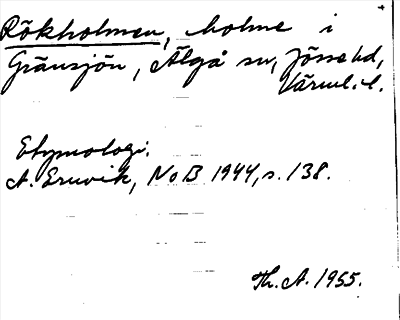 Rökholmen, holme i
Gränsjön, Älgå sn, Jösse hd,
Värml. l.
Etymologi.
A. Ernvik, NoB 1944, s. 138.
Th. A. 1955.